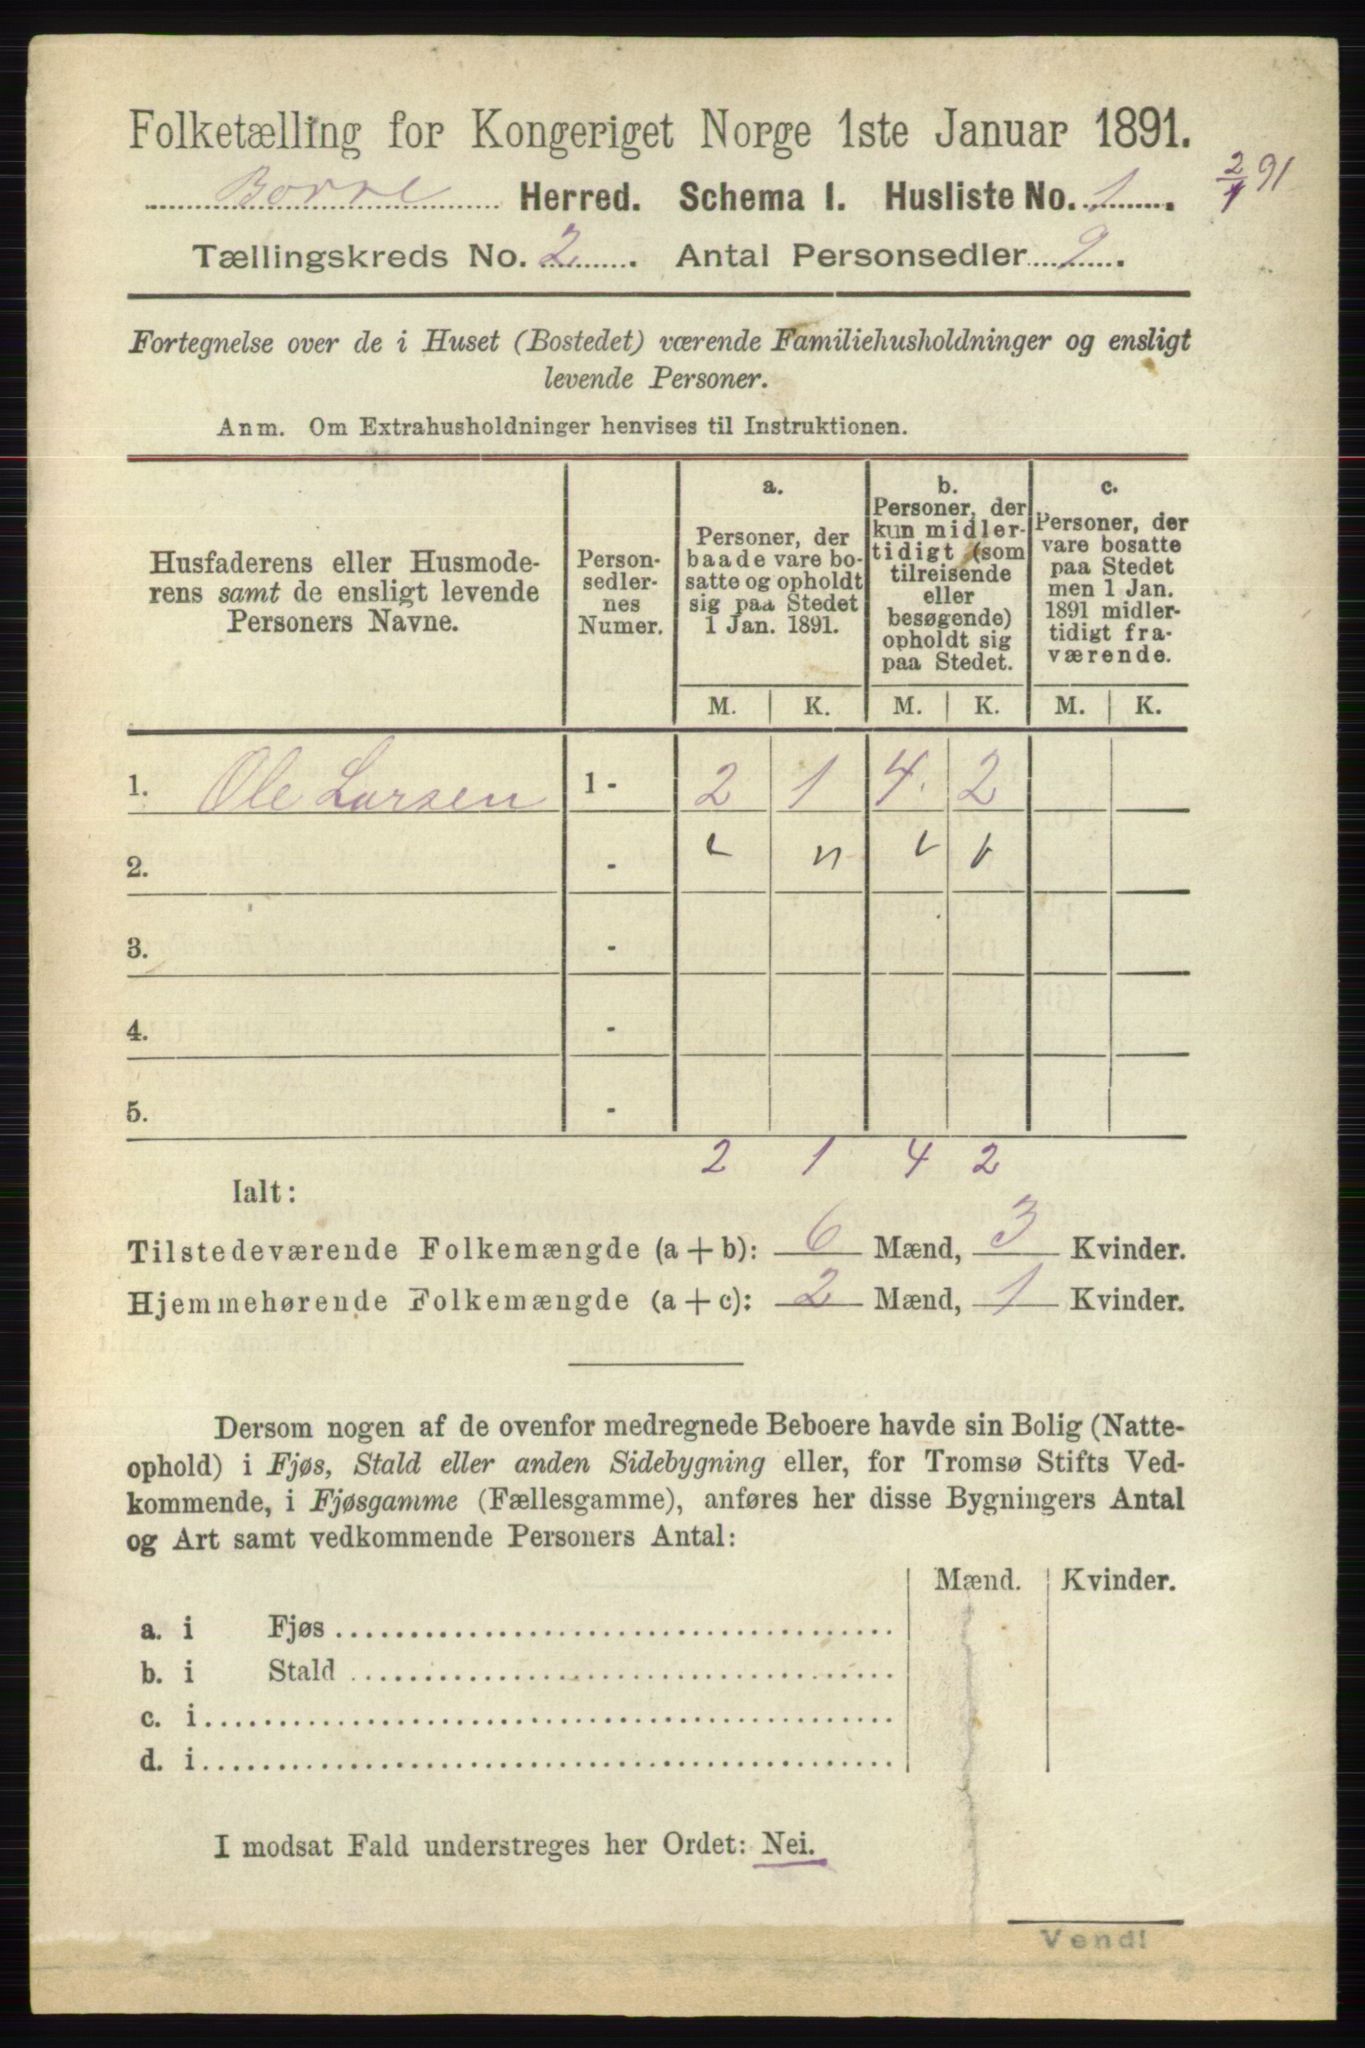 Folketælling for Kongeriget Norge 1ste Januar 1891.
Borre Herred. Schema I. Husliste No. 1.
2/1 91
Tællingskreds No. 2. Antal Personsedler 9.
Fortegnelse over de i Huset (Bostedet) værende Familiehusholdninger og ensligt
levende Personer.
Anm. Om Extrahusholdninger henvises til Instruktionen.
Husfaderens eller Husmode-
rens samt de ensligt levende
Personers Navne.
Person-
sedler-
nes
Numer.
a.
Personer, der
baade vare bo-
satte og opholdt
sig paa Stedet
1 Jan. 1891.
b.
Personer, der
kun midler-
tidigt (som
tilreisende
eller
besøgende)
opholdt sig
paa Stedet.
c.
Personer, der
vare bosatte
paa Stedet
men 1 Jan.
1891 midler-
tidigt fra-
værende.
M. K. M. K. M. K.
1. Ole Larsen 1 - 2 1 4 2
2. -
3. -
4. -
5. -
2 1 4 2
Ialt:
Tilstedeværende Folkemængde (a + b): 6 Mænd, 3 Kvinder.
Hjemmehørende Folkemængde (a + c): 2 Mænd, 1 Kvinder.
Dersom nogen af de ovenfor medregnede Beboere havde sin Bolig (Natte-
ophold) i Fjøs, Stald eller anden Sidebygning eller, for Tromsø Stifts Ved-
kommende, i Fjøsgamme (Fællesgamme), anføres her disse Bygningers Antal
og Art samt vedkommende Personers Antal:
Mænd. Kvinder.
a. i Fjøs
b. i Stald
c. i
d. i
I modsat Fald understreges her Ordet: Nei.
Vend!